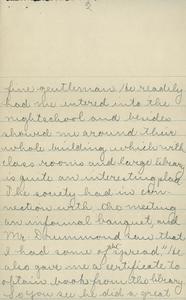 2
fine gentleman he readily
had me intered into the
nightschool and besides
showed me around their
whole building which with
class rooms and large library
is quite an interesting place.
The society had in con-
nection with the meeting
an informal banquet, and
Mr. Drummond saw that
I had some of the "spread," he
also gave me a certificate to
obtain books from the library
So you see he did a great